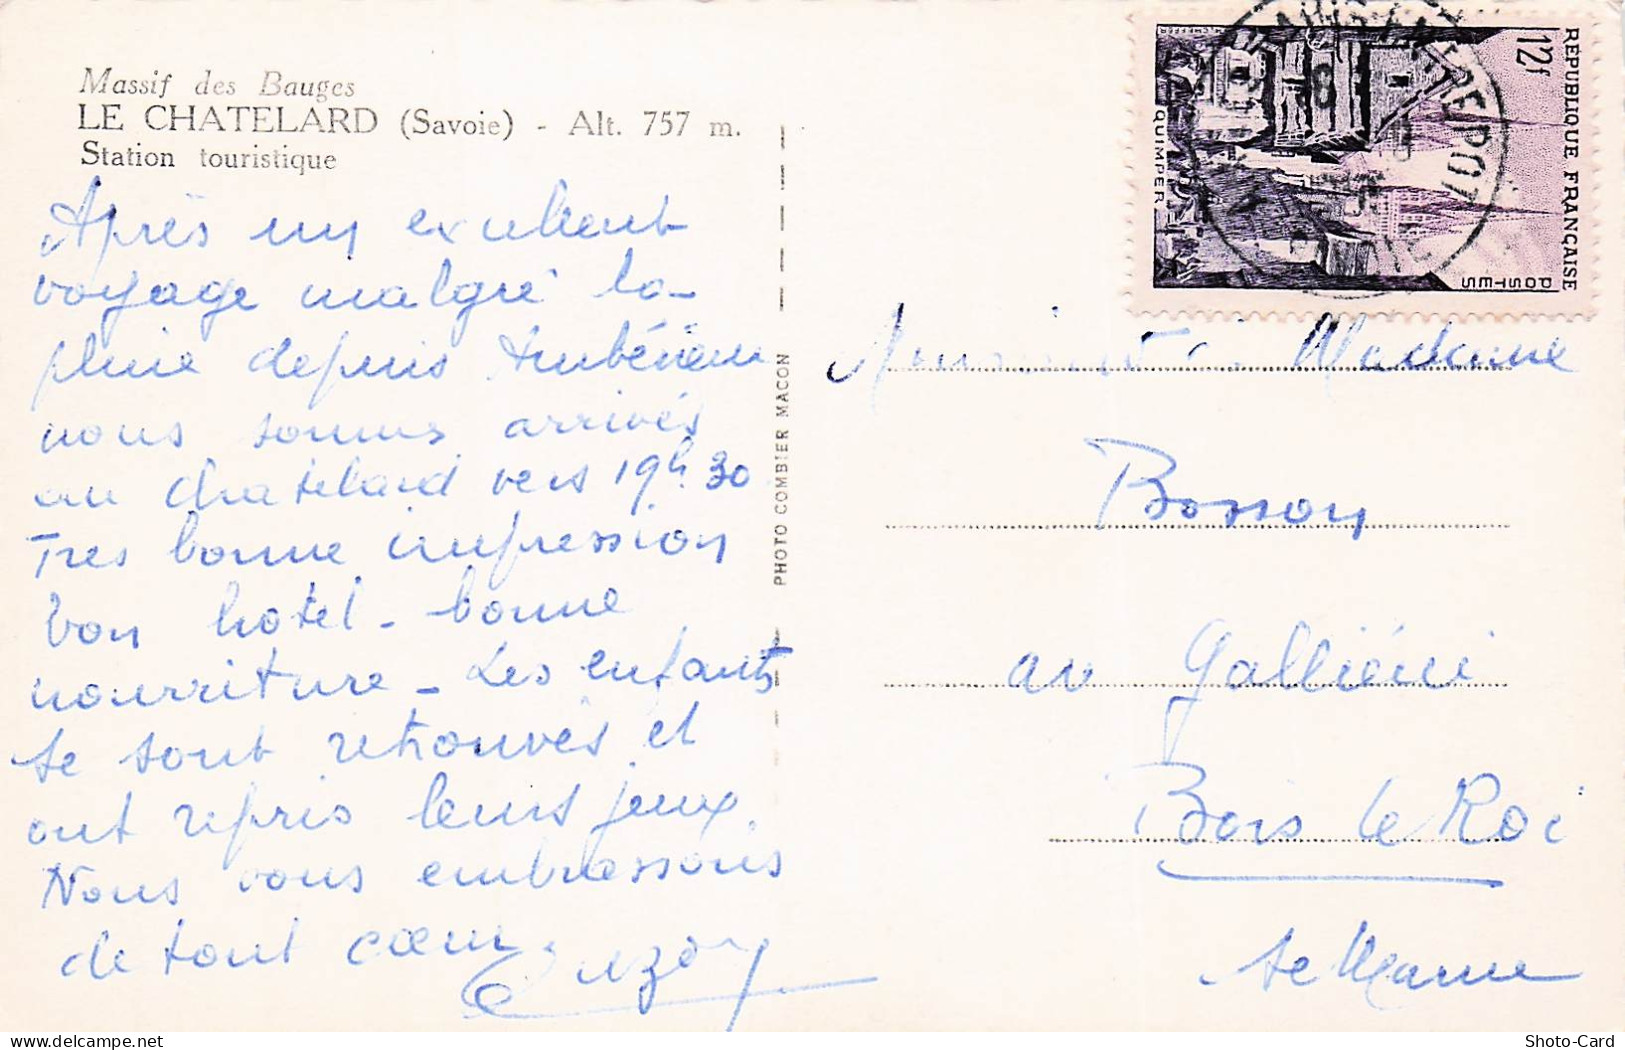 Massif des Bauges
LE CHATELARD (Savoie) - Alt. 757 m.
Station touristique
Après un excellent
voyage malgré la
pluie depuis Ambérieu
nous sommes arrivés
au Chatelard vers 19h 30
Très bonne impression
bon hotel - bonne
nourriture - Les enfants
se sont retrouvés et
ont repris leurs jeux.
Nous vous embrassons
de tout cœur
PHOTO COMBIER MACON
RÉPUBLIQUE FRANÇAISE
12f
POSTES
QUIMPER
ENTREPOT
Monsieur et Madame
Bosson
av Galliéni
Bois le Roi
Se Marne
Shoto-Card